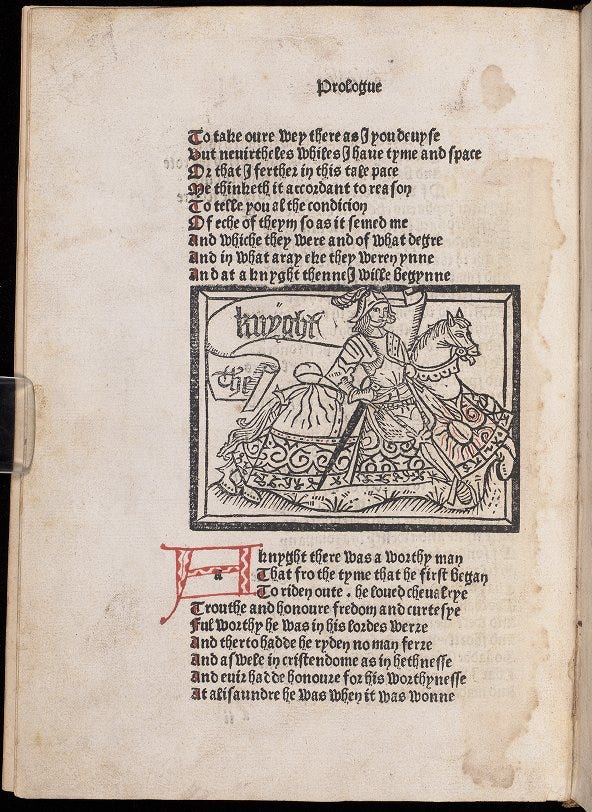 Prologue
To take oure wey there as I you deuyse
But neuirtheles whiles I haue tyme and space
Or that I ferther in this tale pace
Me thinketh it accordant to reason
To telle you al the condicion
Of eche of theym so as it semed me
And whiche they were and of what degre
And in what aray eke they weren ynne
And at a knyght thenne I wille begynne
knyght
the
A knyght there was a worthy man
That fro the tyme that he first began
To riden oute . he loued cheualrye
Trouthe and honoure fredom and curtesye
Ful worthy he was in his lordes werre
And therto hadde he ryden no man ferre
And aswele in cristendome as in hethnesse
And euir hadde honoure for his worthynesse
At alisaundre he was when it was wonne